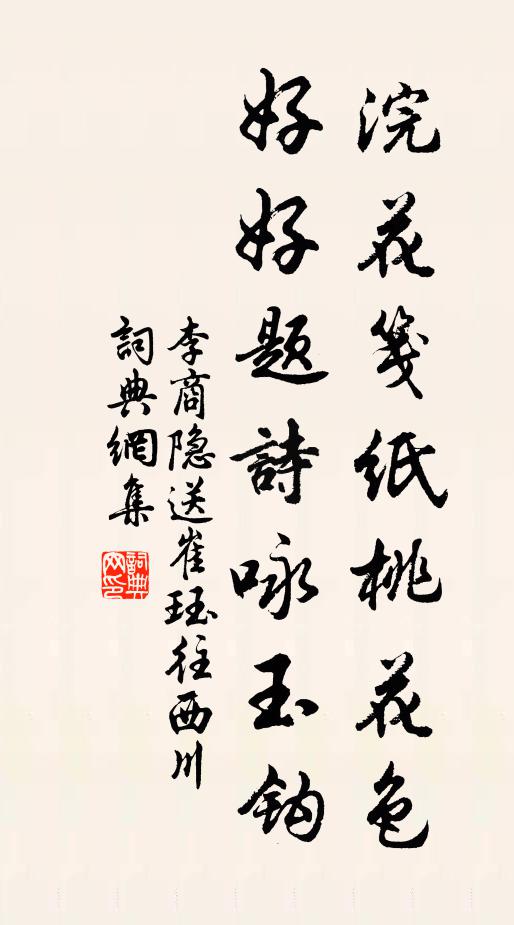 浣花箋纸桃花色
好好题詩咏玉钩
李商隐送崔珏往西川
詞典網集
詞典网印